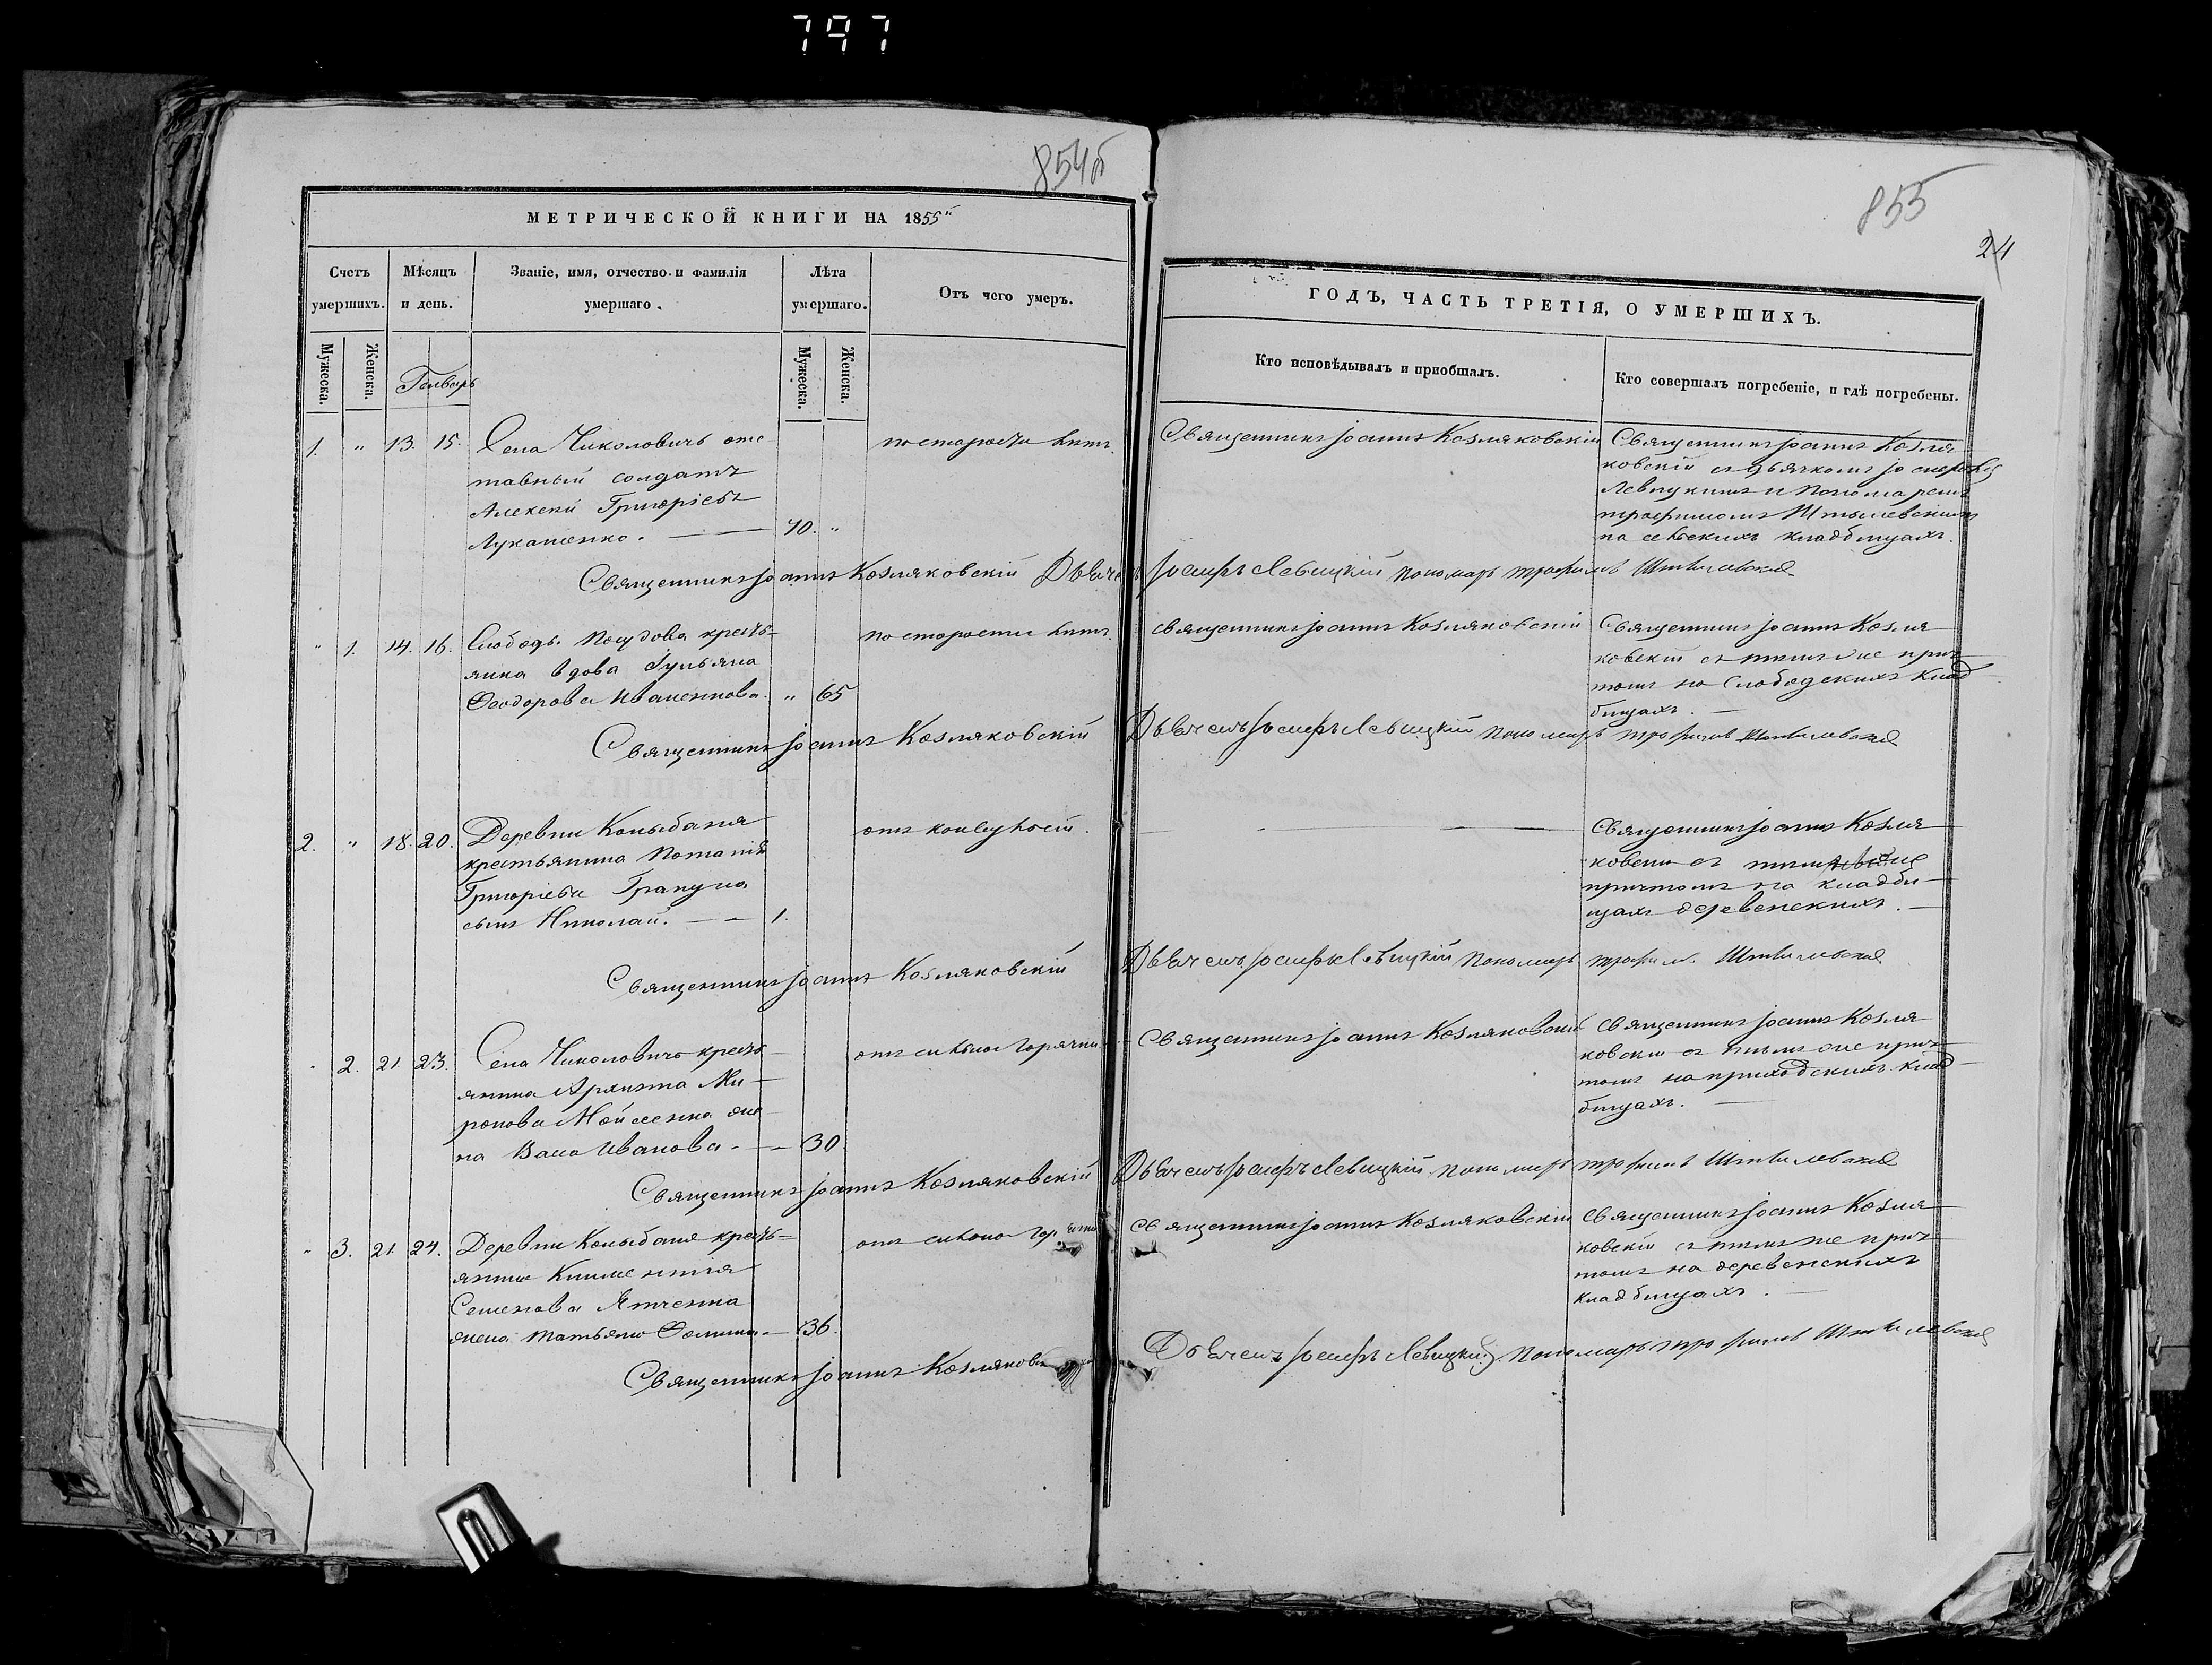 797
854б
МЕТРИЧЕСКОЙ КНИГИ НА 1855й
Счетъ умершихъ.
Мѣсяцъ и день.
Званіе, имя, отчество и фамилія умершаго.
Лѣта умершаго.
Отъ чего умеръ.
Мужеска.
Женска.
Генварь
Мужеска.
Женска.
1. " 13. 15. Села Чиколовичь отс-
тавный солдатъ
Алексей Григоріевъ
Лукашенко. 70. "
по старости лѣтъ.
Священникъ Іоаннъ Козляковскій Дьячекъ
" 1. 14. 16. Слободы кресть-
янка вдова Іульяна
Феодорова Иваненкова. " 65
по старости лѣтъ.
Священникъ Іоаннъ Козляковскій
2. " 18. 20. Деревни Колыбаня
крестьянина Потапія
Григоріева
сынъ Николай. 1.
отъ
Священникъ Іоаннъ Козляковскій
" 2. 21. 23. Села Чиколовичь кресть-
янина Архипта Ми-
ронова Мойсеенка же-
на Иванова. 30.
отъ сильной горячки
Священникъ Іоаннъ Козляковскій
" 3. 21. 24. Деревни Колыбаня кресть-
янина Климентія
Семенова Ятченка
жена Татьяна Фомина. 36.
отъ сильной горячки
Священникъ Іоаннъ Козляковскій
855
24
ГОДЪ, ЧАСТЬ ТРЕТІЯ, О УМЕРШИХЪ.
Кто исповѣдывалъ и приобщалъ.
Кто совершалъ погребеніе, и гдѣ погребены.
Священникъ Іоаннъ Козляковскій
Священникъ Іоаннъ Козля-
ковскій съ дьячкомъ Іосифомъ
Левицкимъ и Пономаремъ
Трофимомъ Штылевскимъ
на сельскихъ кладбищахъ.
Іосифъ Левицкій Пономарь Трофимъ Штылевскій
Священникъ Іоаннъ Козляковскій
Священникъ Іоаннъ Козля-
ковскій съ тѣмъ же прич-
томъ на Слободскихъ клад-
бищахъ.
Дьячекъ Іосифъ Левицкій Пономарь Трофимъ Штылевскій
Священникъ Іоаннъ Козля-
ковскій съ тѣмъ же
причтомъ на кладби-
щахъ деревенскихъ.
Дьячекъ Іосифъ Левицкій Пономарь Трофимъ Штылевскій
Священникъ Іоаннъ Козляковскій
Священникъ Іоаннъ Козля-
ковскій съ тѣмъ же прич-
томъ на приходскихъ клад-
бищахъ.
Дьячекъ Іосифъ Левицкій Пономарь Трофимъ Штылевскій
Священникъ Іоаннъ Козляковскій
Священникъ Іоаннъ Козля-
ковскій съ тѣмъ же прич-
томъ на деревенскихъ
кладбищахъ.
Дьячекъ Іосифъ Левицкій Пономарь Трофимъ Штылевскій